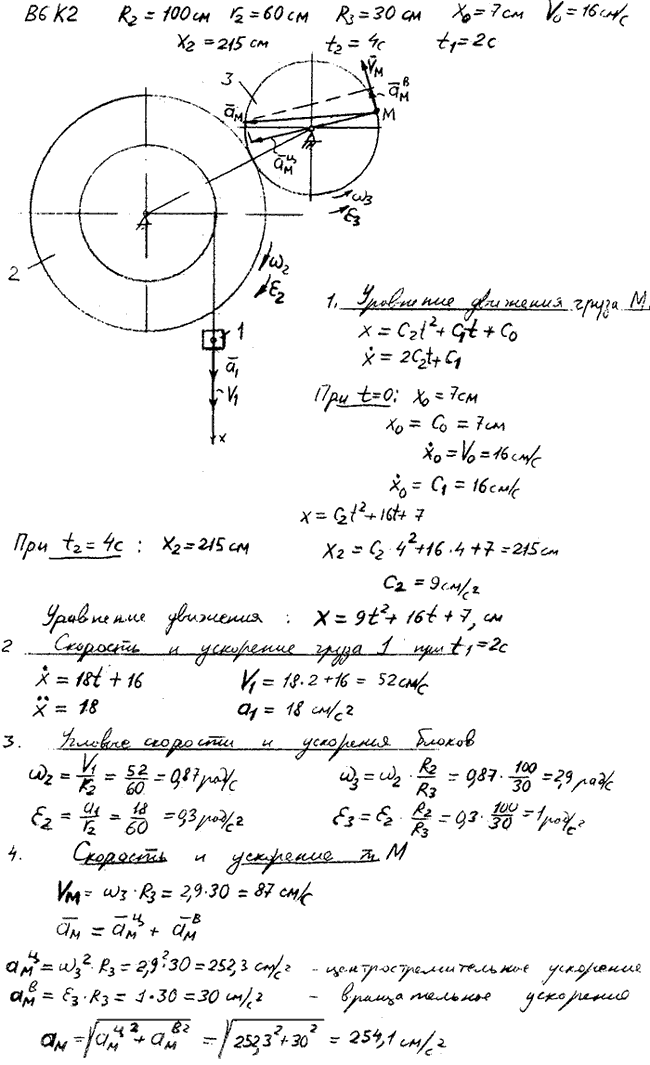 В6 К2 R₂ = 100 см r₂ = 60 см R₃ = 30 см x₀ = 7 см V₀ = 16 см/с
x₂ = 215 см t₂ = 4с t₁ = 2с
3
V̄м
āмᴮ
āм
M
āмᶜ̧ц
ω₃
ε₃
2
ω₂
ε₂
1
ā₁
V₁
x
1. Уравнение движения груза М.
x = C₂t² + C₁t + C₀
ẋ = 2C₂t + C₁
При t=0: x₀ = 7см
x₀ = C₀ = 7см
ẋ₀ = V₀ = 16 см/с
ẋ₀ = C₁ = 16 см/с
x = C₂t² + 16t + 7
При t₂ = 4с : x₂ = 215 см x₂ = C₂·4² + 16·4 + 7 = 215 см
C₂ = 9 см/с²
Уравнение движения : x = 9t² + 16t + 7, см
2 Скорость и ускорение груза 1 при t₁ = 2с
ẋ = 18t + 16 V₁ = 18·2 + 16 = 52 см/с
ẍ = 18 a₁ = 18 см/с²
3. Угловые скорости и ускорения блоков
ω₂ = V₁/r₂ = 52/60 = 0,87 рад/с ω₃ = ω₂ · R₂/R₃ = 0,87 · 100/30 = 2,9 рад/с
ε₂ = a₁/r₂ = 18/60 = 0,3 рад/с² ε₃ = ε₂ · R₂/R₃ = 0,3 · 100/30 = 1 рад/с²
4. Скорость и ускорение т. М
Vм = ω₃ · R₃ = 2,9 · 30 = 87 см/с
āм = āмц + āмв
aмц = ω₃² · R₃ = 2,9² · 30 = 252,3 см/с² - центростремительное ускорение
aмв = ε₃ · R₃ = 1·30 = 30 см/с² - вращательное ускорение
aм = √(aмц² + aмв²) = √(252,3² + 30²) = 254,1 см/с²